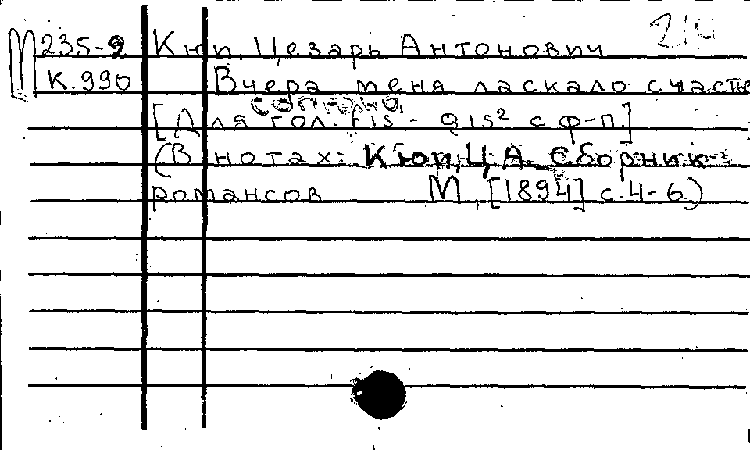 М 235-2 Кюи, Цезарь Антонович 214
К.990 Вчера меня ласкало счастье
сопрано
[Для гол. fis - gis² с ф-п.]
(В нотах: Кюи, Ц.А. Сборник
романсов М., [1894] с.4-6)